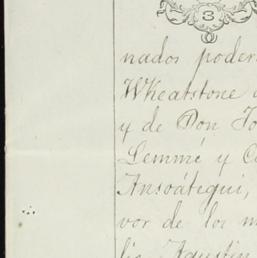 3
nados poder
Wheatstone
y de Don Jo
Lemmé y C
Ansoátegui,
vor de los m
lio Agustin